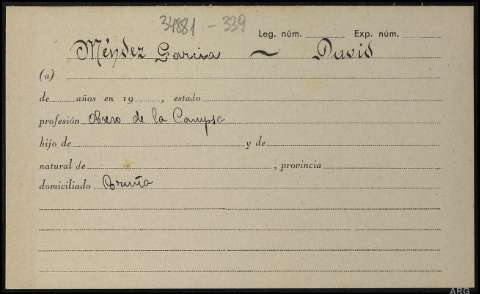 34881 - 339
Leg. núm. Exp. núm.
Méndez García ~ David
(a)
de años en 19 , estado
profesión Obrero de la Campsa
hijo de y de
natural de , provincia
domiciliado
ARG